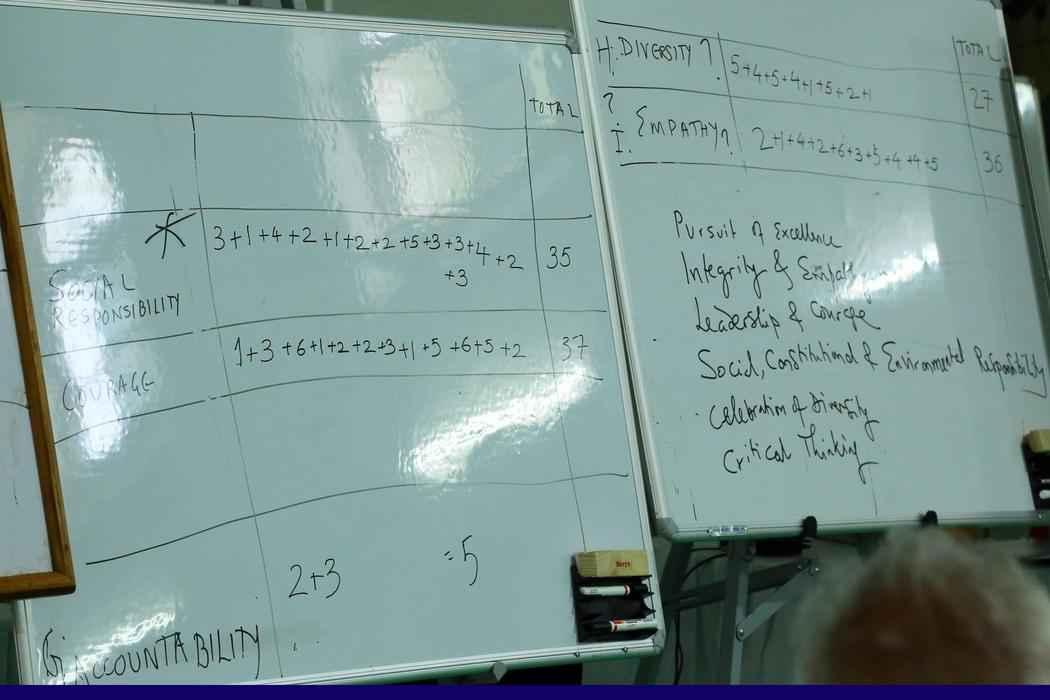 TOTAL
3+1+4+2+1+2+2+5+3+3+4+2
+3
35
SOCIAL
RESPONSIBILITY
1+3+6+1+2+2+3+1+5+6+5+2
37
COURAGE
2+3 =5
G. ACCOUNTABILITY
TOTAL
H. DIVERSITY? 5+4+5+4+1+5+2+1 27
?
I. EMPATHY? 2+1+4+2+6+3+5+4+4+5 36
Pursuit of Excellence
Integrity & Empathy
Leadership & Courage
Social, Constitutional & Environmental Responsibility
Celebration of Diversity
Critical Thinking